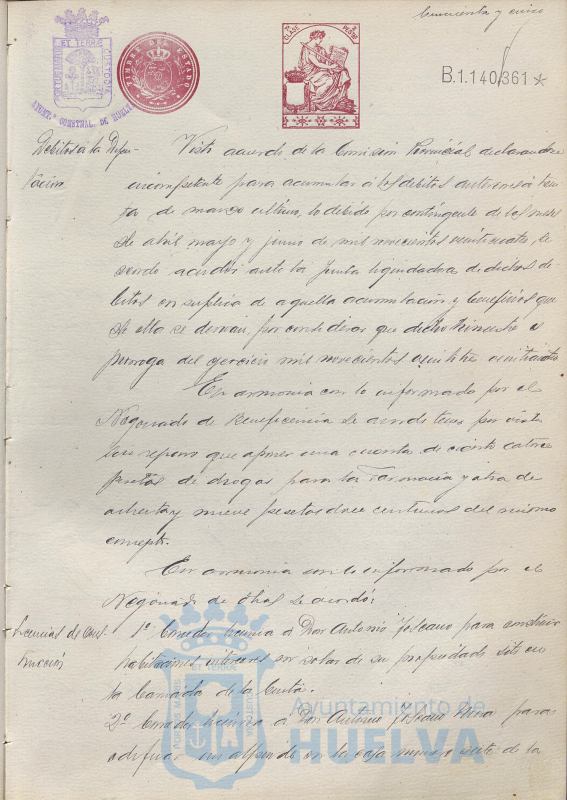 Cincuenta y cinco
PORTUS MARIS ET TERRÆ CUSTODIA
AYUNT.º CONSTNAL. DE HUELVA
TIMBRE DEL ESTADO
7ª CLASE
B.1.140,361*
Debitos á la Dipu-
tación
Visto acuerdo de la Comisión Provincial declarandose
incompetente para acumular á los débitos anteriores á trein-
ta de marzo último, lo debido por contingente de los meses
de abril mayo y junio de mil novecientos veinticuatro, se
acordó acudir ante la Junta liquidadora de dichos dé-
bitos en suplica de aquella acumulación y beneficios que
de ella se derivan, por considerar que dicho trimestre es
prorroga del ejercicio mil novecientos veintitres veinticuatro
En armonia con lo informado por el
Negociado de Beneficencia se acordó tener por vista
sin reparo que oponer una cuenta de ciento catorce
pesetas de drogas para la Farmacia y otra de
ochenta y nueve pesetas doce centimos del mismo
concepto.
En armonia con lo informado por el
Negociado de Obras se acordó:
Licencias de cons-
trucción
1º Conceder licencia á Don Antonio Toscano para construir
habitaciones interiores en solar de su propiedad sito en
la Cañada de la
2º Conceder licencia á Don Antonio Toscano para
edificar un alpende en la casa numero siete de la
PORTUS MARIS ET TERRÆ CUSTODIA
Ayuntamiento de
HUELVA